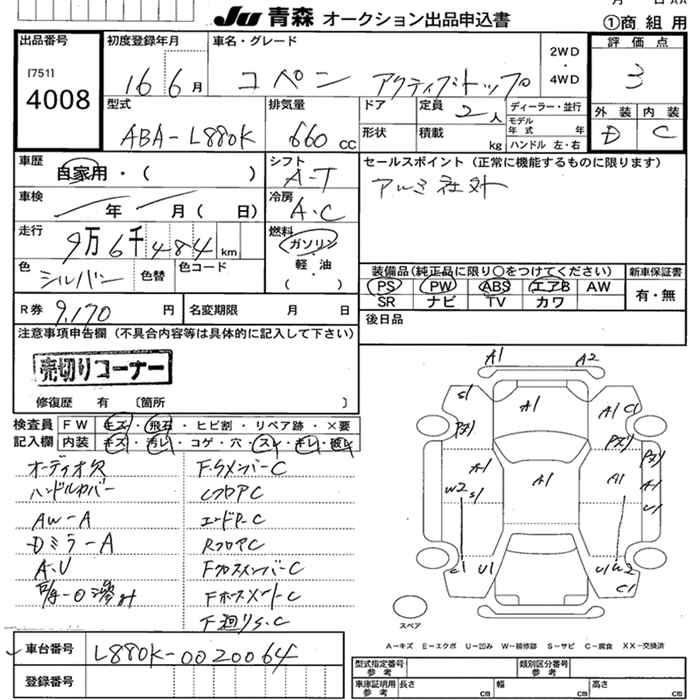 Ju 青森 オークション出品申込書
①商組用
出品番号
[751]
4008
初度登録年月
16 6月
車名・グレード
コペン アクティブトップ
2WD
・
4WD
評価点
3
外装 内装
D C
型式
ABA-L880K
排気量
660 cc
ドア
形状
定員 2人
積載 kg
ディーラー・並行
モデル年式 年
ハンドル 左・右
車歴
自家用・( )
シフト
A-T
車検
年 月( 日)
冷房
A・C
走行
9万6千484km
燃料
ガソリン
軽・油
( )
色
シルバー
色替
色コード
セールスポイント(正常に機能するものに限ります)
アルミ社外
装備品(純正品に限り〇をつけてください)
PS PW ABS エアB AW
SR ナビ TV カワ
新車保証書
有・無
R券 9,170円
名変期限 月 日
後日品
注意事項申告欄(不具合内容等は具体的に記入して下さい)
売切りコーナー
修復歴 有 〔箇所 〕
検査員 FW キズ・飛石・ヒビ割・リペア跡・×要
記入欄 内装 キズ・汚レ・コゲ・穴・スレ・キレ・破レ
オーディオ欠
ハンドルカバー
AW-A
Dミラー A
A・U
F・クロスメンバーC
LフロアC
エンドP-C
RフロアC
FクロスメンバーC
F廻りS.C
A1 A2
S1 A1 A1 C1
A1 A1 A1
W2 S1 U1
C1 U1 U1 W2
C1
スペア
A-キズ E-エクボ U-凹み W-補修跡 S-サビ C-腐食 XX-交換済
車台番号
L880K-0020064
登録番号
型式指定番号
参考
類別区分番号
参考
車庫証明用
参考
長さ cm
幅 cm
高さ cm